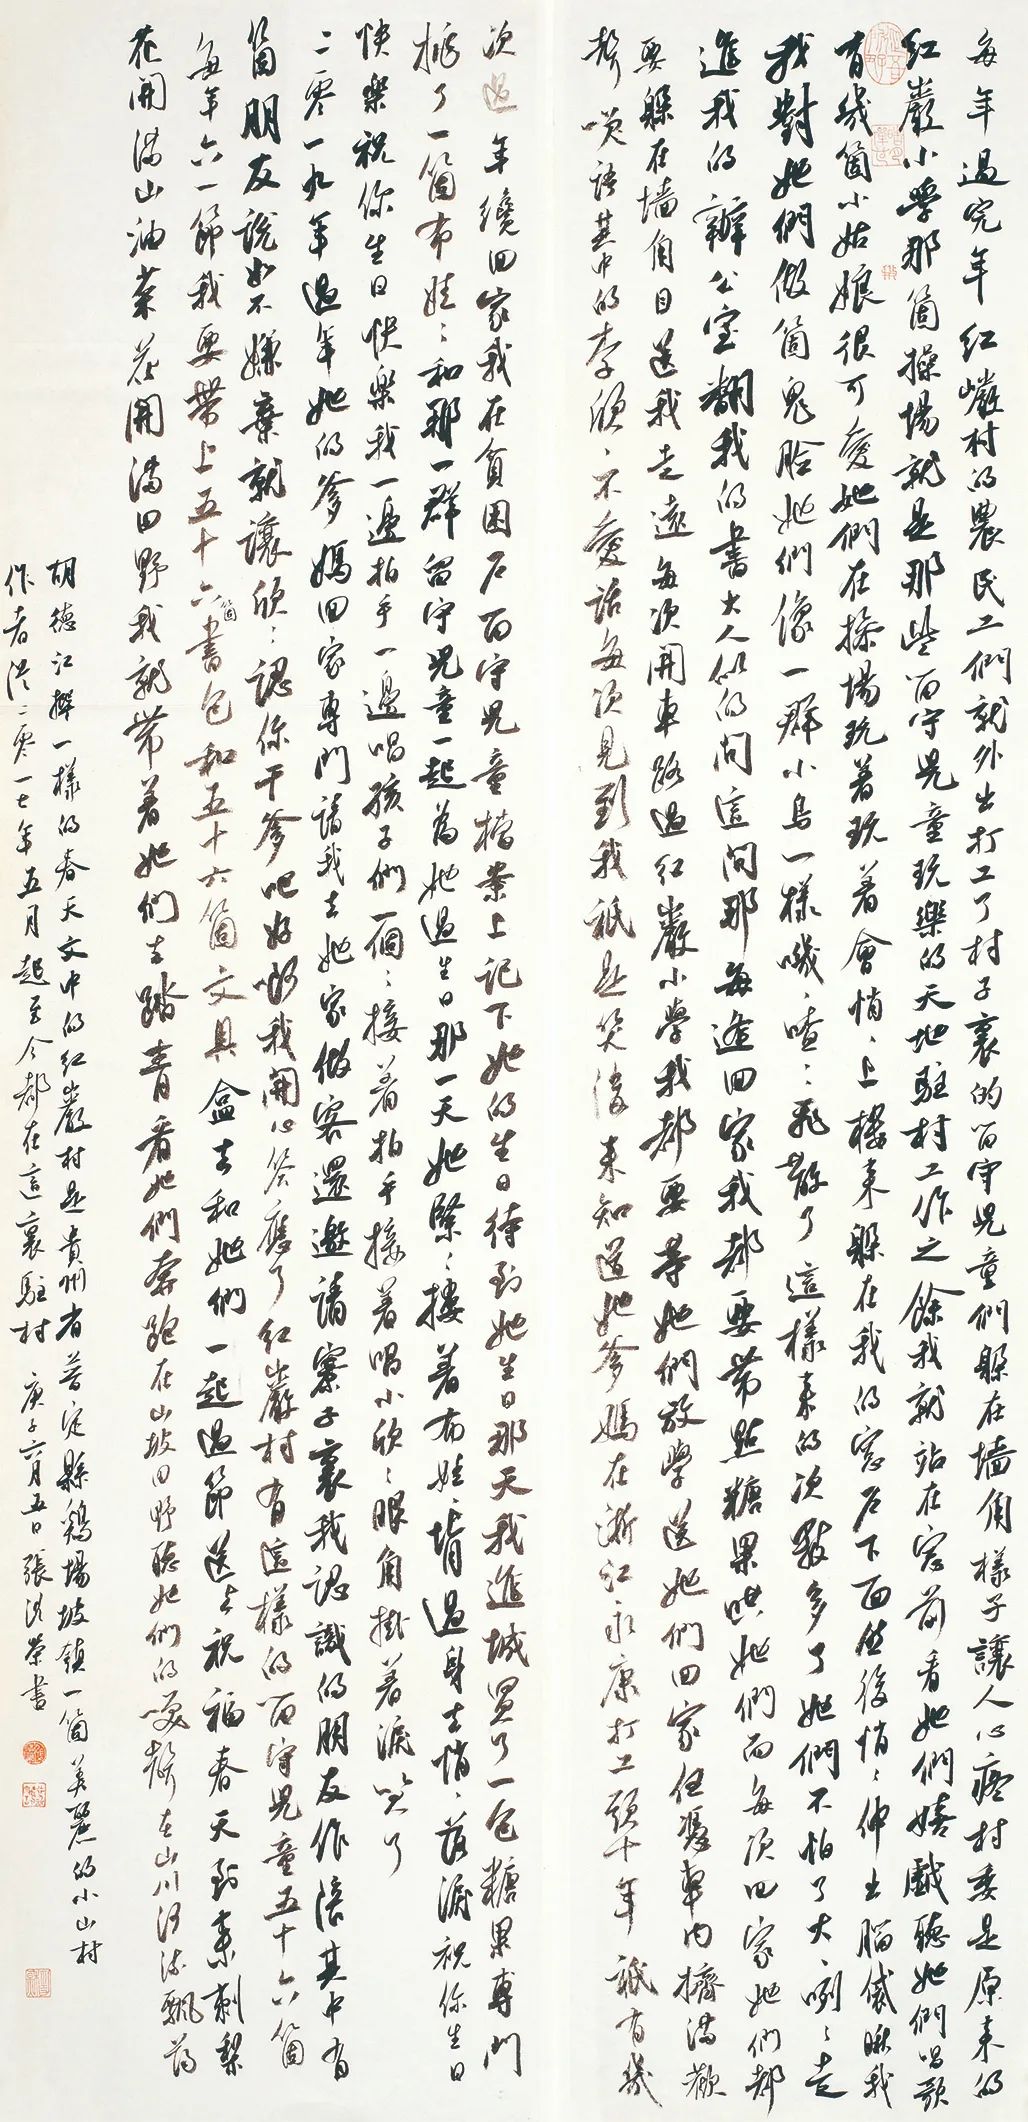 每年過完年紅巖村的農民工們就外出打工了村子裏的留守兒童們躲在墻角樣子讓人心疼村委是原來的
紅巖小學那箇操場就是那些留守兒童玩樂的天地駐村工作之餘我就站在窗前看她們嬉戲聽她們唱歌
有幾箇小姑娘很可愛她們在操場玩着玩着會悄、上樓來躲在我的窗户下面然後悄、伸出腦袋瞅我
我對她們做箇鬼臉她們像一群小鳥一樣嘰、喳、飛散了這樣來的次數多了她們不怕了大、咧、走
進我的辦公室翻我的書大人似的問這問那每逢回家我都要帶點糖果哄她們而每次回家她們都
要躲在墻角目送我走遠每次開車路過紅巖小學我都要等她們放學送她們回家任憑車内擠滿歡
聲笑語其中的李欣、不愛話每次見到我祇是笑後來知道她爹媽在浙江永康打工頭十年祇有幾
次過年纔回家我在貧困户留守兒童檔案上記下她的生日待到她生日那天我進城買了一包糖果專門
挑了一箇布娃、和那一群留守兒童一起為她過生日那一天她緊、摟着布娃、背過身去悄、落淚祝你生日
快樂祝你生日快樂我一邊拍手一邊唱孩子們一個、接着拍手接着唱小欣、眼角掛着淚笑了
二零一九年過年她的爹媽回家專門請我去她家做客還邀請寨子裏我認識的朋友作陪其中有
箇朋友說如不嫌棄就讓欣、認你干爹吧好啊我開心答應了紅巖村有這樣的留守兒童五十六箇
每年六一節我要帶上五十六箇書包和五十六箇文具盒去和她們一起過節送去祝福春天到來刺梨
花開滿山油菜花開滿田野我就帶着她們去踏青看她們奔跑在山坡田野聽她們的笑聲在山川河流飄蕩
胡德江撰一樣的春天文中的紅巖村是貴州省普定縣鷄場坡鎮一箇美麗的小山村
作者從二零一七年五月起至今都在這裏駐村 庚子六月五日張洪榮書